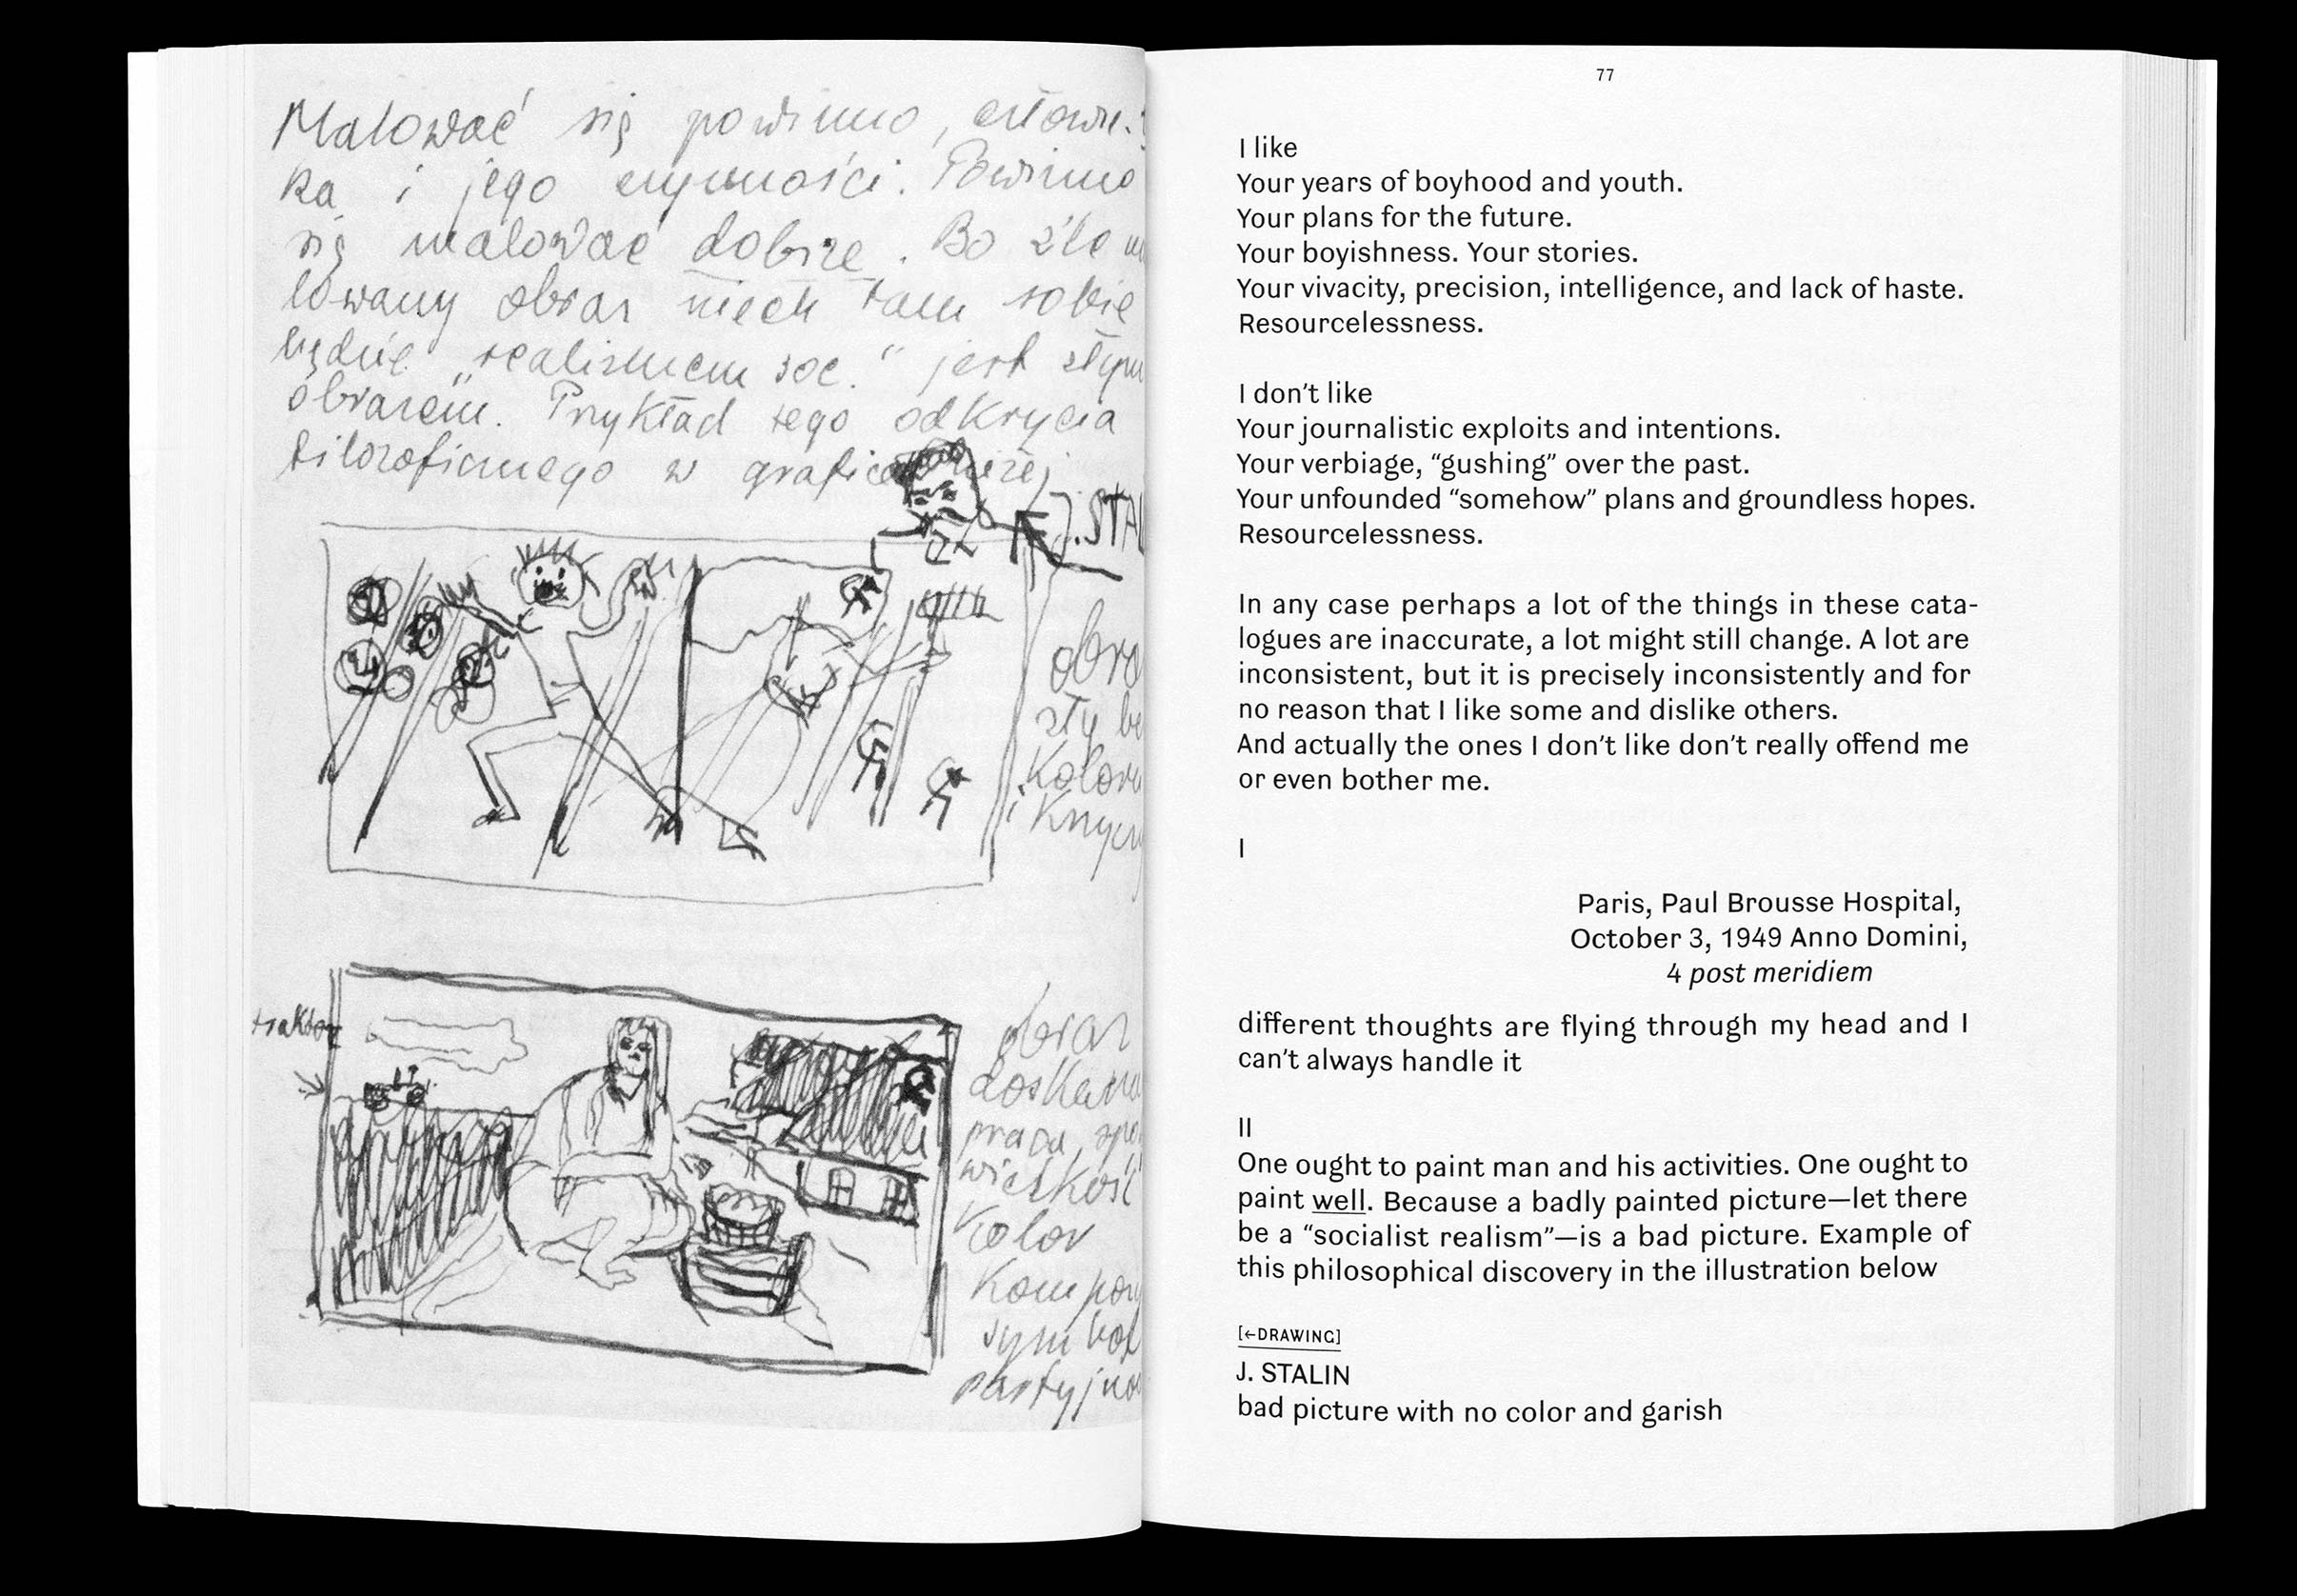 Malować się powinno, człowie-
ka i jego czynności. Powinno
się malować dobrze. Bo źle m
lowany obraz niech tam sobie
będzie "realizmem soc." jest złym
obrazem. Przykład tego odkrycia
filozoficznego w grafice niżej
J. STAL
obra
zły be
kolor
i krzyc
traktor
obraz
doskona
praca, spo
wielkość
kolor
kompozy
symbol
partyjno
77
I like
Your years of boyhood and youth.
Your plans for the future.
Your boyishness. Your stories.
Your vivacity, precision, intelligence, and lack of haste.
Resourcelessness.
I don't like
Your journalistic exploits and intentions.
Your verbiage, “gushing” over the past.
Your unfounded “somehow” plans and groundless hopes.
Resourcelessness.
In any case perhaps a lot of the things in these cata-
logues are inaccurate, a lot might still change. A lot are
inconsistent, but it is precisely inconsistently and for
no reason that I like some and dislike others.
And actually the ones I don't like don't really offend me
or even bother me.
I
Paris, Paul Brousse Hospital,
October 3, 1949 Anno Domini,
4 post meridiem
different thoughts are flying through my head and I
can't always handle it
II
One ought to paint man and his activities. One ought to
paint well. Because a badly painted picture—let there
be a “socialist realism”—is a bad picture. Example of
this philosophical discovery in the illustration below
[←DRAWING]
J. STALIN
bad picture with no color and garish